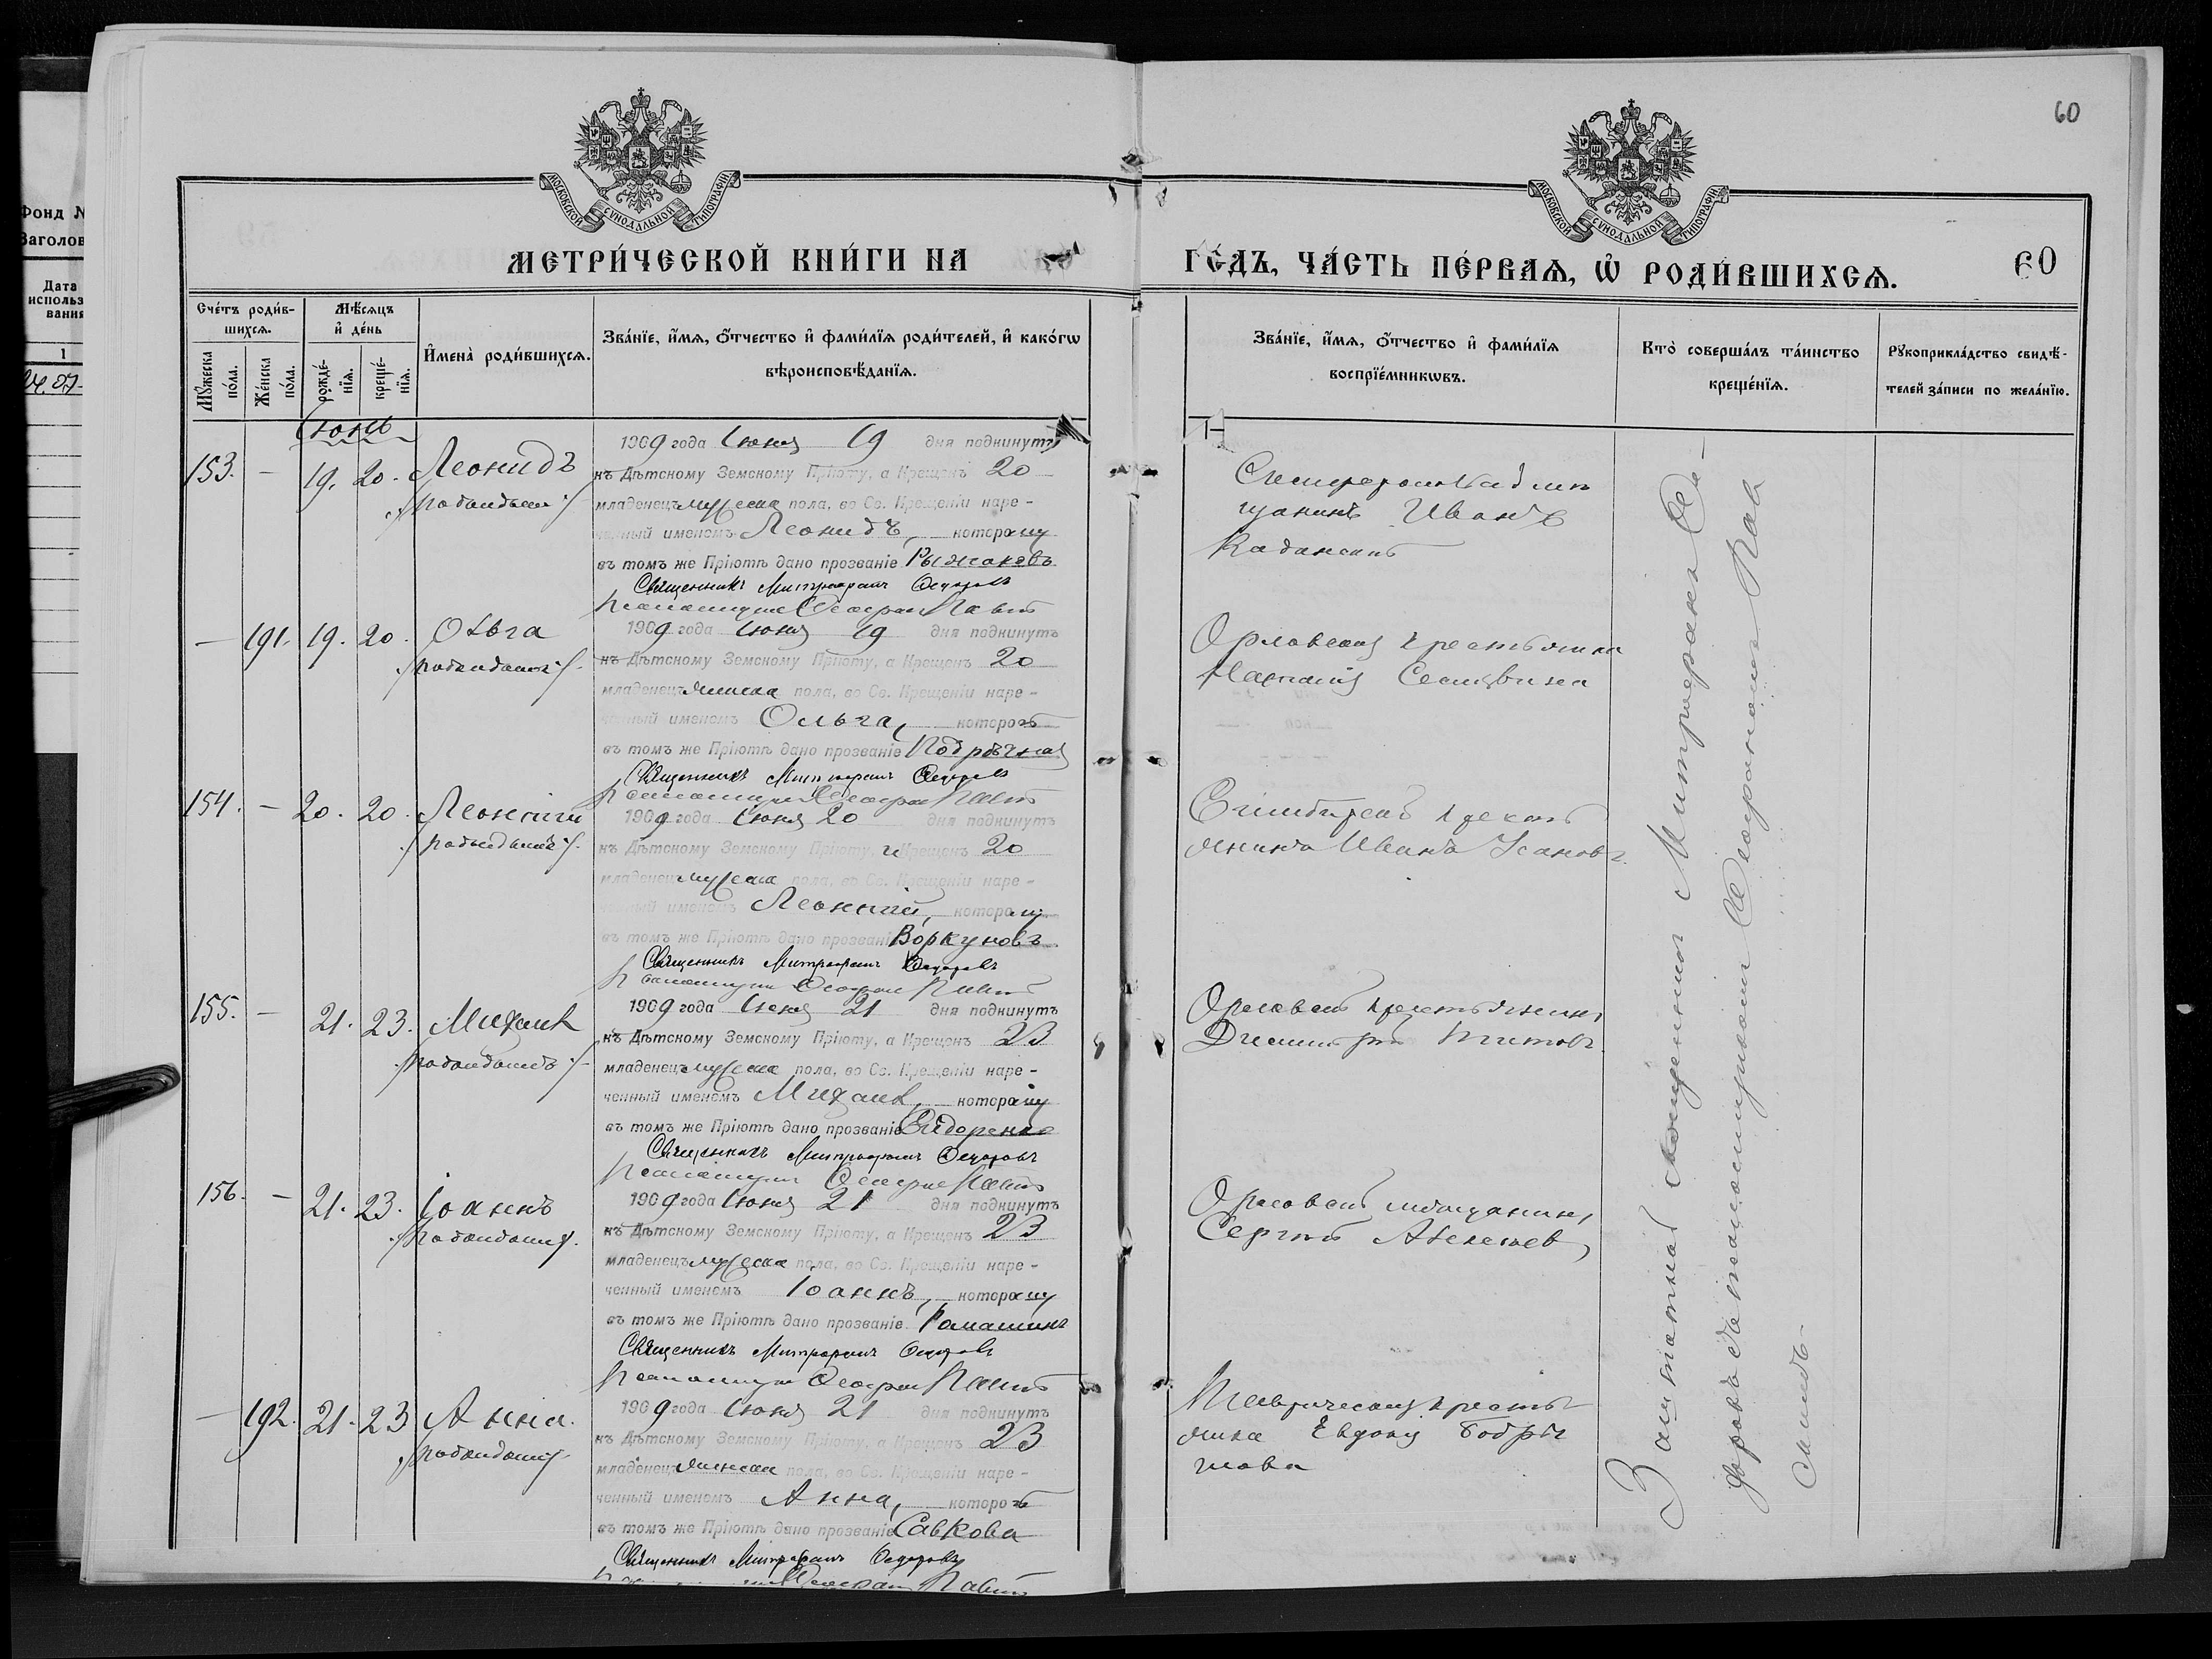 60
МОСКОВСКОЙ СУНОДАЛЬНОЙ ТИПОГРАФІИ
МОСКОВСКОЙ СУНОДАЛЬНОЙ ТИПОГРАФІИ
МЕТРИ́ЧЕСКОЙ КНИ́ГИ НА
ГО́ДЪ, ЧА́СТЬ ПЕ́РВАѦ, Ѡ҆ РОДИ́ВШИХСѦ.
60
Фонд №
Заголов
Дата
использ
вания
1
Сче́тъ роди́в-
шихсѧ.
Мѣ́сѧцъ
и҆ де́нь
Мꙋ́жеска по́ла.
Же́нска по́ла.
рожде́-нїѧ.
креще́-нїѧ.
И҆мена̀ роди́вшихсѧ.
Зва́нїе, и҆́мѧ, ѻ҆́тчество и҆ фами́лїѧ роди́телей, и҆ како́гѡ
вѣроисповѣ́данїѧ.
Зва́нїе, и҆́мѧ, ѻ҆́тчество и҆ фами́лїѧ
воспрїе́мникѡвъ.
Кто̀ соверша́лъ та́инство
креще́нїѧ.
Рꙋкоприкла́дство свидѣ́-
телей за́писи по жела́нїю.
Іюнь
153. — 19. 20. Леонидъ
1909 года Іюня 19 дня подкинутъ
къ Дѣтскому Земскому Пріюту, а Крещенъ 20
младенецъ мужеска пола, во Св. Крещеніи наре-
ченный именемъ Леонидъ, которому
въ томъ же Пріютѣ дано прозваніе Рыжаковъ
Священникъ Митрофанъ Ѳедоровъ
щанинъ Иванъ
— 191. 19. 20. Ольга
1909 года Іюня 19 дня подкинутъ
къ Дѣтскому Земскому Пріюту, а Крещенъ 20
младенецъ женска пола, во Св. Крещеніи наре-
ченный именемъ Ольга, которой
въ томъ же Пріютѣ дано прозваніе
Священникъ Митрофанъ Ѳедоровъ
Орловская крестьянка
154. — 20. 20. Леонтій
1909 года Іюня 20 дня подкинутъ
къ Дѣтскому Земскому Пріюту, и Крещенъ 20
младенецъ мужеска пола, во Св. Крещеніи наре-
ченный именемъ Леонтій, которому
въ томъ же Пріютѣ дано прозваніе Воркуновъ
Священникъ Митрофанъ Ѳедоровъ
янинъ Иванъ
155. — 21. 23. Михаилъ
1909 года Іюня 21 дня подкинутъ
къ Дѣтскому Земскому Пріюту, а Крещенъ 23
младенецъ мужеска пола, во Св. Крещеніи наре-
ченный именемъ Михаилъ, которому
въ томъ же Пріютѣ дано прозваніе Сидоренко
Священникъ Митрофанъ Ѳедоровъ
Орловскій крестьянинъ
Димитрій Титовъ
156. — 21. 23. Іоаннъ
1909 года Іюня 21 дня подкинутъ
къ Дѣтскому Земскому Пріюту, а Крещенъ 23
младенецъ мужеска пола, во Св. Крещеніи наре-
ченный именемъ Іоаннъ, которому
въ томъ же Пріютѣ дано прозваніе Ромашинъ
Священникъ Митрофанъ Ѳедоровъ
Орловскій мѣщанинъ
Сергѣй
— 192. 21. 23 Анна.
1909 года Іюня 21 дня подкинутъ
къ Дѣтскому Земскому Пріюту, а Крещенъ 23
младенецъ женска пола, во Св. Крещеніи наре-
ченный именемъ Анна, которой
въ томъ же Пріютѣ дано прозваніе Савкова
Священникъ Митрофанъ Ѳедоровъ
Таврическая кресть-
янка Евдокія
Заштатный священникъ Митрофанъ Ѳе-
доровъ